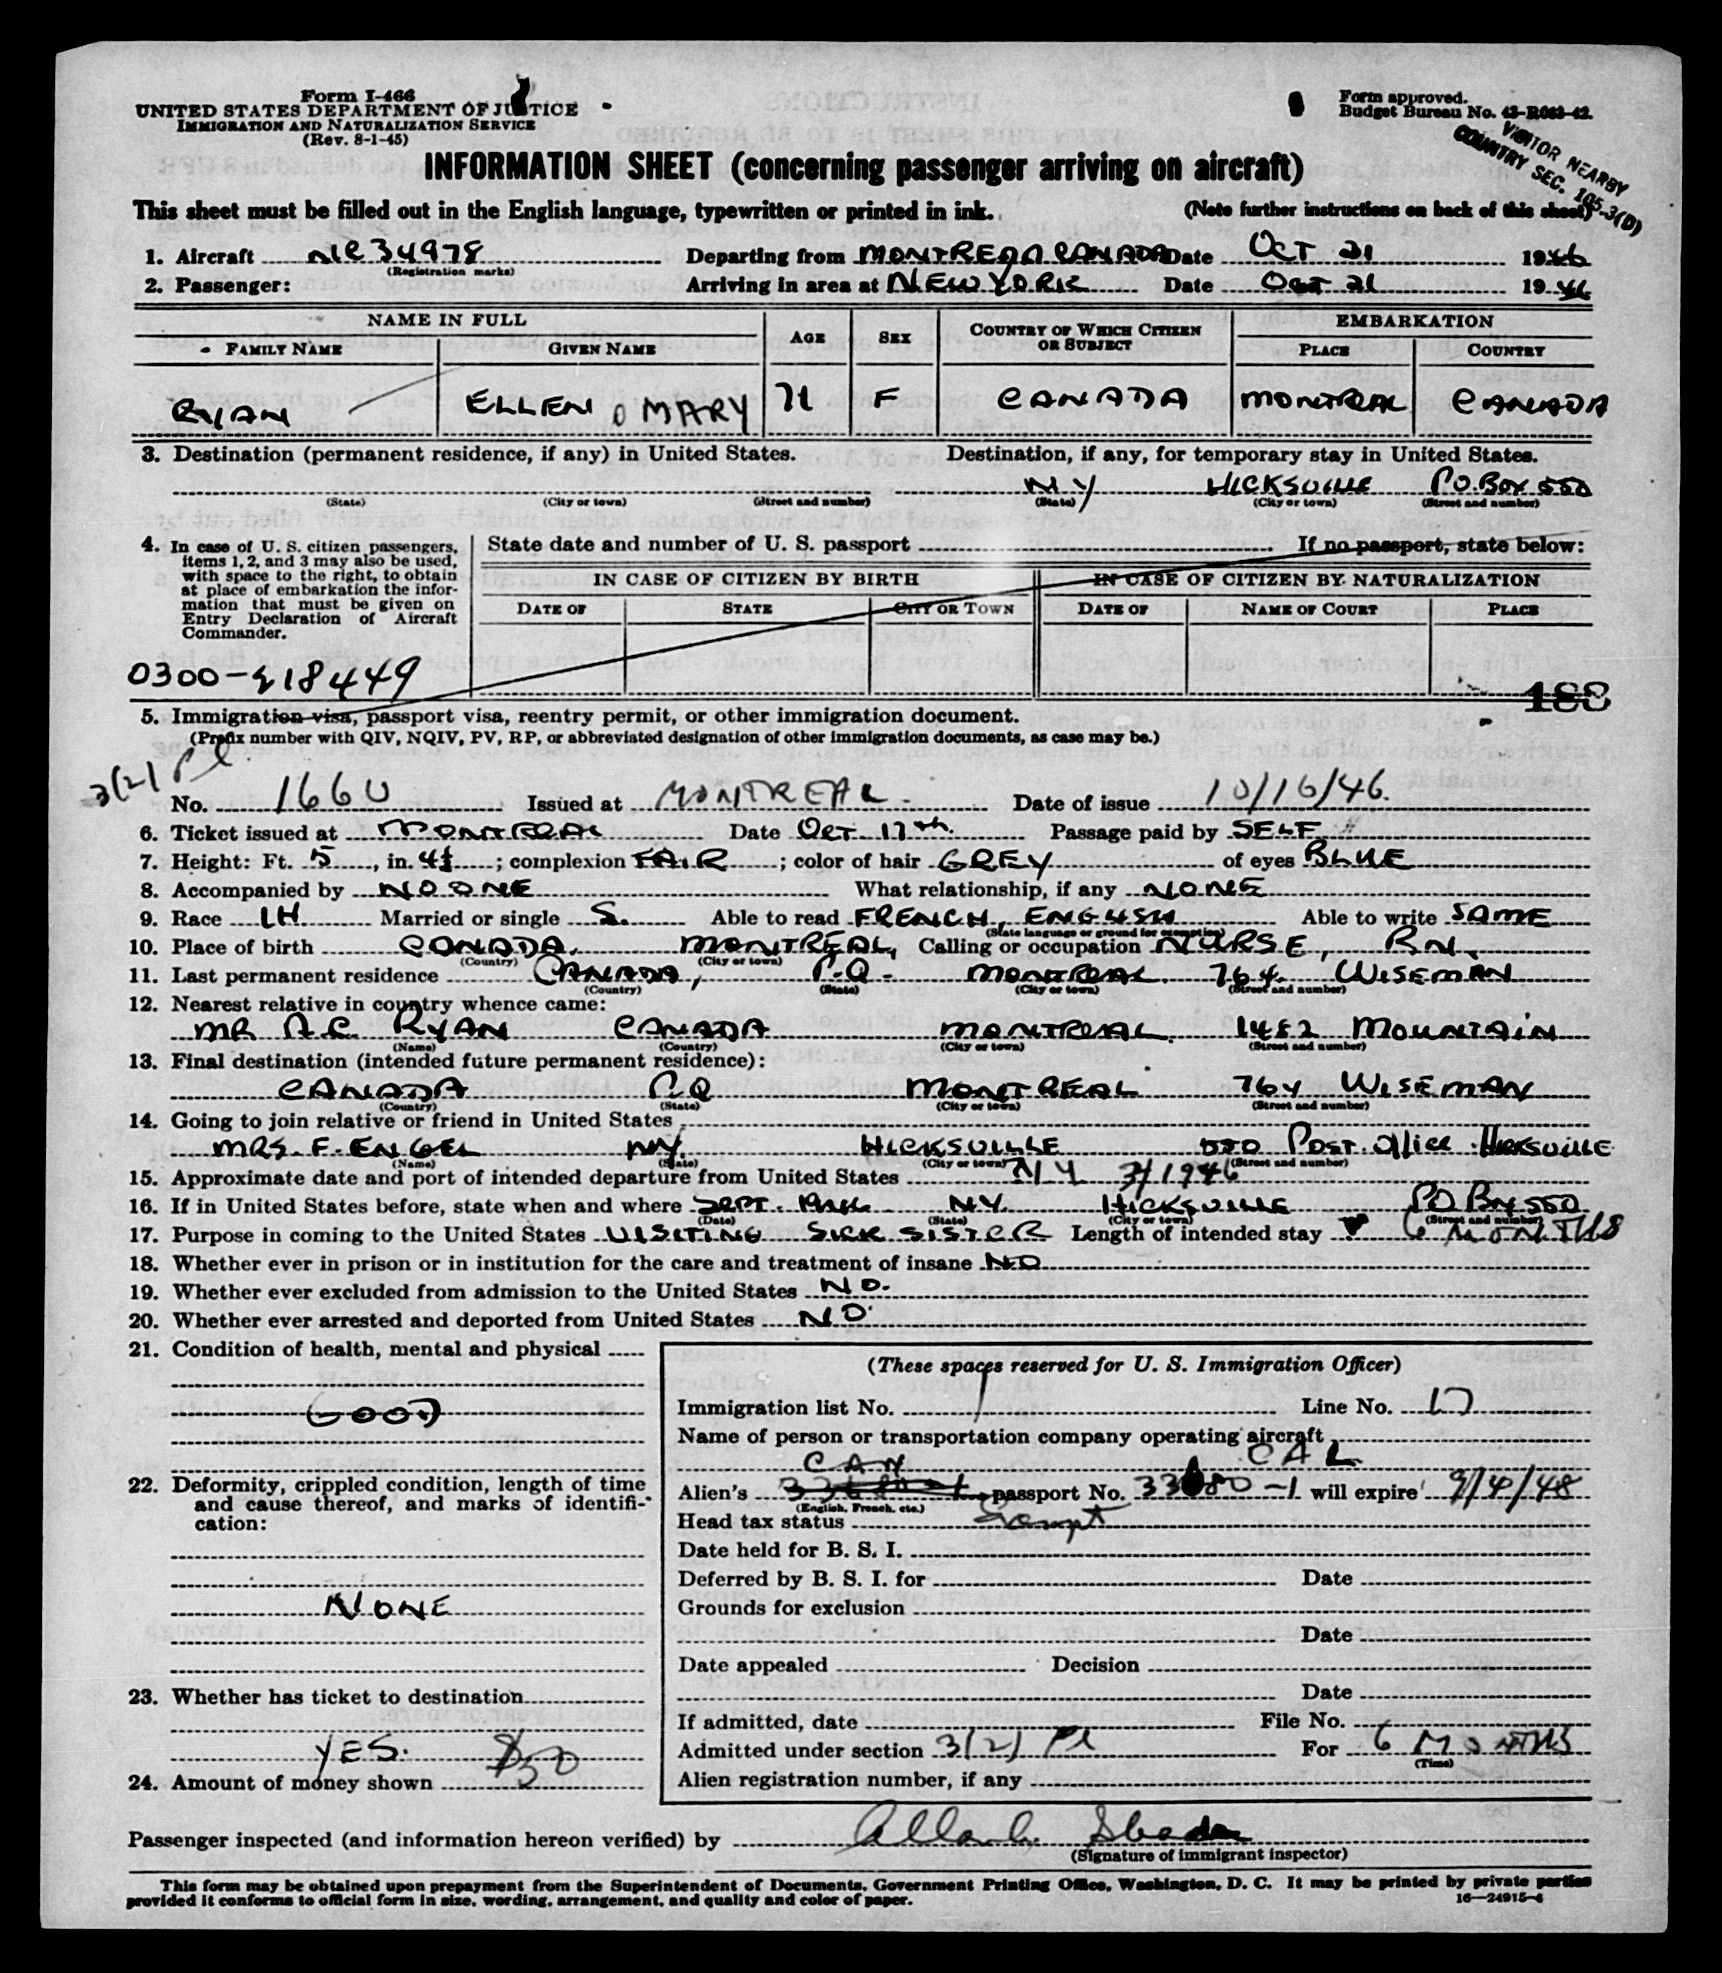 Form I-466
UNITED STATES DEPARTMENT OF JUSTICE
IMMIGRATION AND NATURALIZATION SERVICE
(Rev. 8-1-45)
Form approved.
Budget Bureau No. 43-R083-42.
VISITOR NEARBY
COUNTRY SEC. 105.3(D)
INFORMATION SHEET (concerning passenger arriving on aircraft)
This sheet must be filled out in the English language, typewritten or printed in ink. (Note further instructions on back of this sheet)
1. Aircraft NC34978 Departing from MONTREAL CANADA Date OCT 21 1946
(Registration marks)
2. Passenger: Arriving in area at NEW YORK Date OCT 21 1946
NAME IN FULL AGE SEX COUNTRY OF WHICH CITIZEN OR SUBJECT EMBARKATION
FAMILY NAME GIVEN NAME PLACE COUNTRY
RYAN ELLEN MARY 71 F CANADA MONTREAL CANADA
3. Destination (permanent residence, if any) in United States. Destination, if any, for temporary stay in United States.
NY HICKSVILLE P.O. BOX 550
(State) (City or town) (Street and number) (State) (City or town) (Street and number)
4. In case of U. S. citizen passengers, items 1, 2, and 3 may also be used, with space to the right, to obtain at place of embarkation the information that must be given on Entry Declaration of Aircraft Commander.
State date and number of U. S. passport If no passport, state below:
IN CASE OF CITIZEN BY BIRTH IN CASE OF CITIZEN BY NATURALIZATION
DATE OF STATE CITY OR TOWN DATE OF NAME OF COURT PLACE
0300-218449
188
5. Immigration visa, passport visa, reentry permit, or other immigration document.
(Prefix number with QIV, NQIV, PV, RP, or abbreviated designation of other immigration documents, as case may be.)
3(2) Pl
No. 1660 Issued at MONTREAL Date of issue 10/16/46
6. Ticket issued at MONTREAL Date OCT 17th Passage paid by SELF
7. Height: Ft. 5, in. 4½; complexion FAIR; color of hair GREY of eyes BLUE
8. Accompanied by NO ONE What relationship, if any NONE
9. Race IH Married or single S. Able to read FRENCH, ENGLISH Able to write SAME
(State language or ground for exemption)
10. Place of birth CANADA, MONTREAL, Calling or occupation NURSE, RN,
(Country) (City or town)
11. Last permanent residence CANADA, P.Q. MONTREAL 764 WISEMAN
(Country) (State) (City or town) (Street and number)
12. Nearest relative in country whence came:
MR A.C. RYAN CANADA MONTREAL 1482 MOUNTAIN
(Name) (Country) (City or town) (Street and number)
13. Final destination (intended future permanent residence):
CANADA P.Q MONTREAL 764 WISEMAN
(Country) (State) (City or town) (Street and number)
14. Going to join relative or friend in United States
MRS. F. ENGEL NY. HICKSVILLE 550 POST. Office HICKSVILLE
(Name) (State) (City or town) (Street and number)
15. Approximate date and port of intended departure from United States NY 3/1946
16. If in United States before, state when and where SEPT. N.Y. HICKSVILLE PO BOX 550
(Date) (State) (City or town) (Street and number)
17. Purpose in coming to the United States VISITING SICK SISTER Length of intended stay 6 MONTHS
18. Whether ever in prison or in institution for the care and treatment of insane NO
19. Whether ever excluded from admission to the United States NO.
20. Whether ever arrested and deported from United States NO
21. Condition of health, mental and physical
GOOD
22. Deformity, crippled condition, length of time and cause thereof, and marks of identification:
NONE
23. Whether has ticket to destination
YES.
24. Amount of money shown $50
(These spaces reserved for U. S. Immigration Officer)
Immigration list No. 1 Line No. 17
Name of person or transportation company operating aircraft
CAL
Alien's CAN passport No. 33080-1 will expire 9/4/48
(English, French, etc.)
Head tax status Exempt
Date held for B. S. I.
Deferred by B. S. I. for Date
Grounds for exclusion
Date
Date appealed Decision
Date
If admitted, date File No.
Admitted under section 3(2) Pl For 6 MONTHS
(Time)
Alien registration number, if any
Passenger inspected (and information hereon verified) by
(Signature of immigrant inspector)
This form may be obtained upon prepayment from the Superintendent of Documents, Government Printing Office, Washington, D. C. It may be printed by private parties
provided it conforms to official form in size, wording, arrangement, and quality and color of paper. 16—24915-4